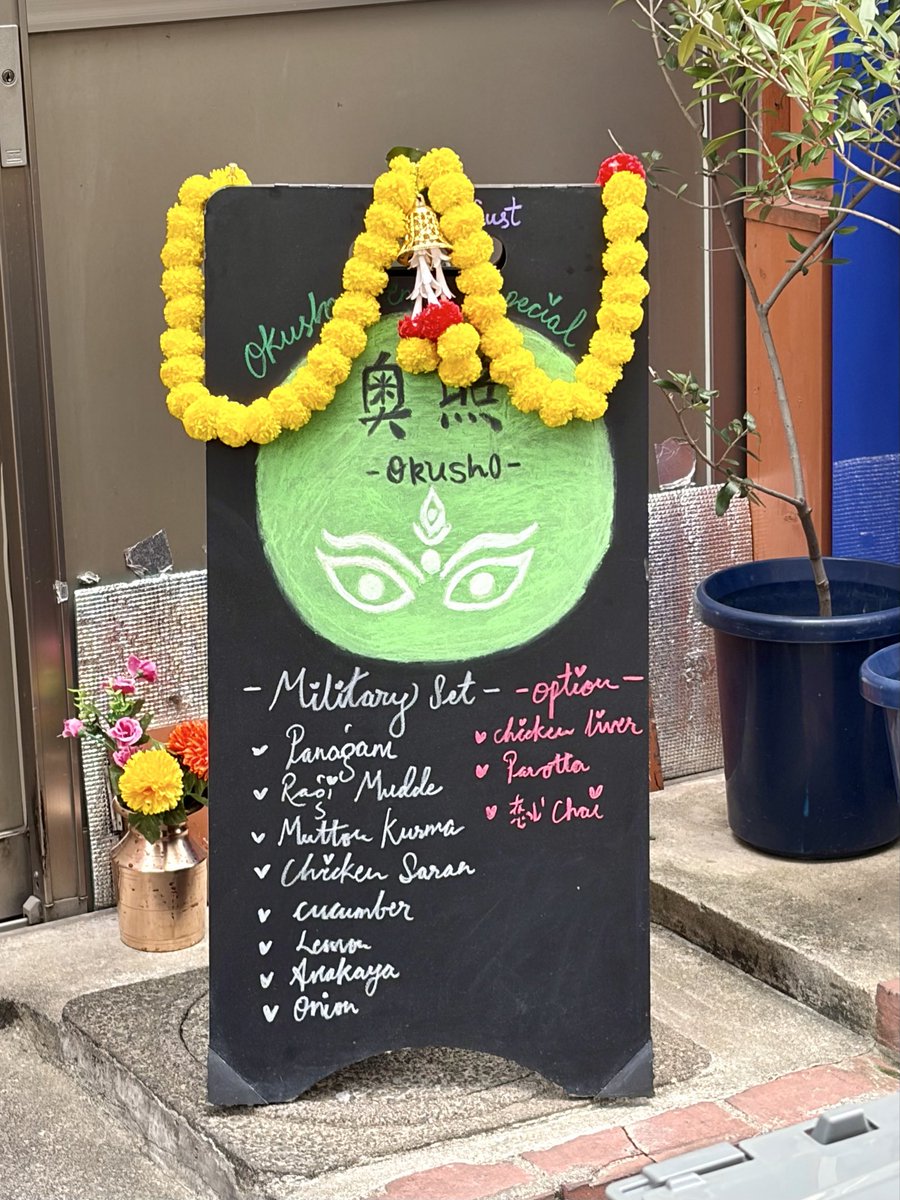 Okusho
pecial
奥照
-OKUSHO-
- Military Set -
Panagam
Ragi Mudde
Mutton Kurma
Chicken Saran
cucumber
Lemon
Anakaya
Onion
- option -
chicken liver
Parotta
Chai